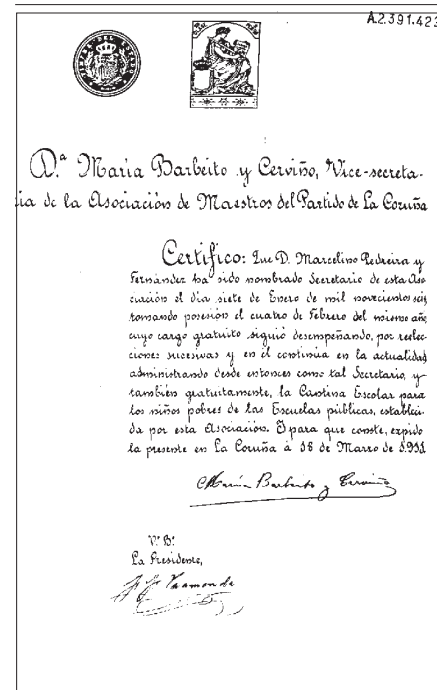 A.2.391.423
D.ª Maria Barbeito y Cerviño, Vice-secreta-
ria de la Asociación de Maestros del Partido de La Coruña
Certifico: Que D. Marcelino Pedreira y
Fernández ha sido nombrado Secretario de esta Aso-
ciación el día siete de Enero de mil novecientos seis,
tomando posesión el cuatro de Febrero del mismo año,
cuyo cargo gratuito siguió desempeñando, por reelec-
ciones sucesivas y en él continúa en la actualidad
administrando desde entonces como tal Secretario, y
también gratuitamente, la Cantina Escolar para
los niños pobres de las Escuelas públicas, estableci-
da por esta Asociación. Y para que conste, expido
la presente en La Coruña à 18 de Marzo de 1.911
Maria Barbeito y Cerviño
V.º B.º
La Presidente,